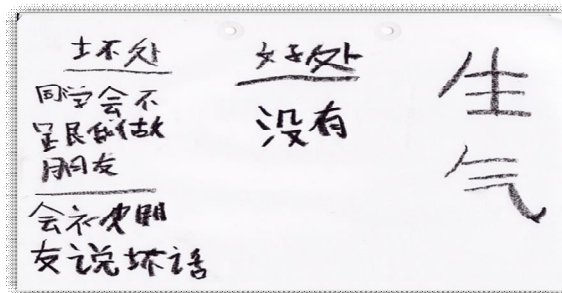 坏处
同学会不
跟做
朋友
会
友说坏话
好处
没有
生
气